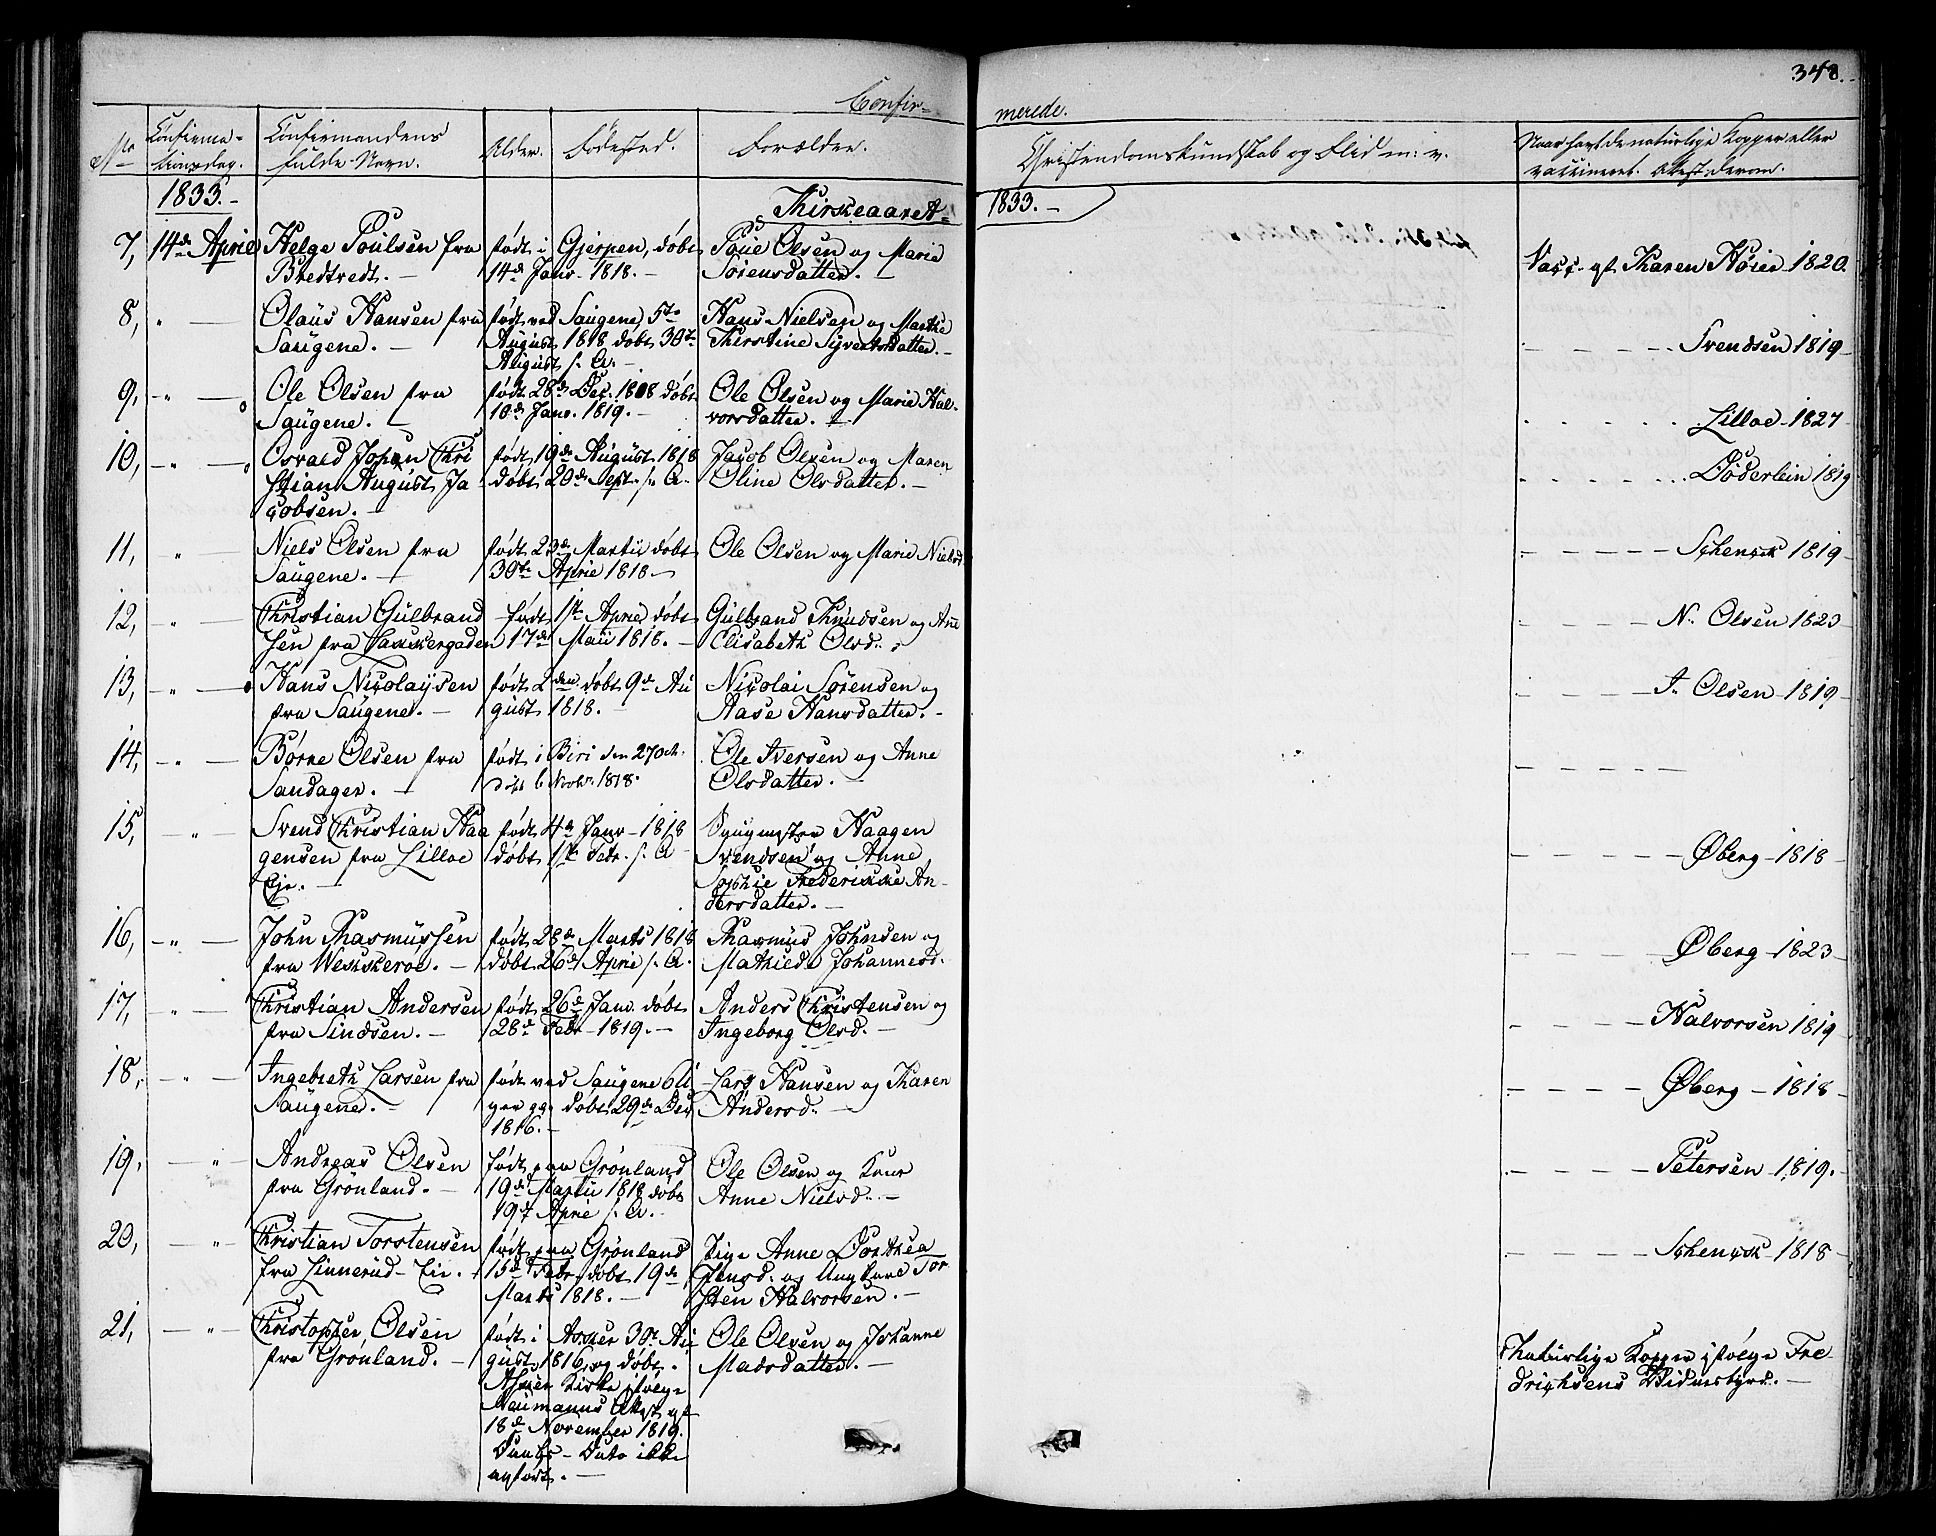 Confir-
merede.
348.
No
Confirma-
tionsdag.
Confirmandens
fulde Navn.
Alder.
Fødested.
Forældre.
Christendomskundskab og Flid m: v.
Naar havt de naturlige Kopper eller
vaccineret. Attest derom.
1833.-
Kirkeaaret
1833.-
7, 14de April Helge Poulsen fra født i Gjerpen, døbt Poul Olsen og Marie
Bredtvedt. - 14de Janv. 1818. - Sørensdatter.
Vacc. af Karen Høier 1820.
8, " Olaus Hansen fra født ved Saugene 5te Hans Nielsen og Marthe
Saugene. - August 1818 døbt 30te Kirstine Sivertsdatter.-
August s. A. -
- - - - Svendsen 1819-
9, " Ole Olsen fra født 28de Dec. 1818 døbt Ole Olsen og Marie Hal-
Saugene. 10de Janv. 1819. - vorsdatter.
Lilloe 1827
10, " Osvald Johan Chri født 19de August 1818 Jacob Olsen og Maren
stian August Ja- døbt 20de Sept. s. A. Oline Olsdatter. -
cobsen. -
Døderlein 1819
11, " Niels Olsen fra født 23de Martii døbt Ole Olsen og Marie Nielsd
Saugene. - 30te April 1818 -
- - - - Schenck 1819-
12, " Christian Gulbrand født 1ste April døbt Gulbrand Knudsen og Ane
sen fra Lakkergaden 17de Maii 1818. - Elisabeth Olsd..
- - - - N. Olsen 1823
13, " Hans Nicolaysen født 2den døbt 9de Au Nicolai Sørensen og
fra Saugene. - gust 1818. - Aase Hansdatter. -
- - - - T. Olsen 1819-
14, " Børre Olsen fra født i Biri den 27 Oct. Ole Iversen og Anne
Sandager. - døbt 6 Novbr. 1818. Olsdatter. -
- - - - -
15, " Svend Christian Haa født 4de Janv. 1818 Haagen
gensen fra Lilloe døbt 1ste Febr. s. A Svendsen og Anne
Eje. - Sophie Frederikke An-
dersdatter. -
- - - - Øberg 1818-
16, " John Rasmussen født 28de Marts 1818 Rasmus Johnsen og
fra Weskeroe. - døbt 26de April s. A. Mathilde Johannesd.
- - - - Øberg 1823-
17, " Christian Andersen født 26de Janv. døbt Anders Christensen og
fra Sindsen. - 28de Febr 1819. - Ingeborg Olsd. -
- - - - Halvorsen 1819
18, " Ingebreth Larsen fra født ved Saugene Lars Hansen og Karen
Saugene. - døbt 29de Dec Andersd. -
1816. -
- - - - Øberg - 1818-
19, " Andreas Olsen født paa Grønland Ole Olsen og Kone
fra Grønland. - 19de Martii 1818 døbt Anne Nielsd. -
19de April s. A. -
- - - - Petersen 1819.
20, " Christian Torstensen født paa Grønland Pige Anne Dorthea
fra Linnerud-Eie. - 15de Febr. døbt 19de Jensd. og Ungkarl Tor
Marts 1818. - sten Halvorsen. -
- - - - Schenck 1818
21, " Christopher Olsen født i Asker 30te Au Ole Olsen og Johanne
fra Grønland. - gust 1816, og døbt i Madsdatter. -
Asker Kirke ifølge
Neumanns Attest af
18de November 1819.
Daabs-Dato ikke
anført. -
Naturlige Kopper ifølge Fre-
drichsens Vidnesbyrd. -